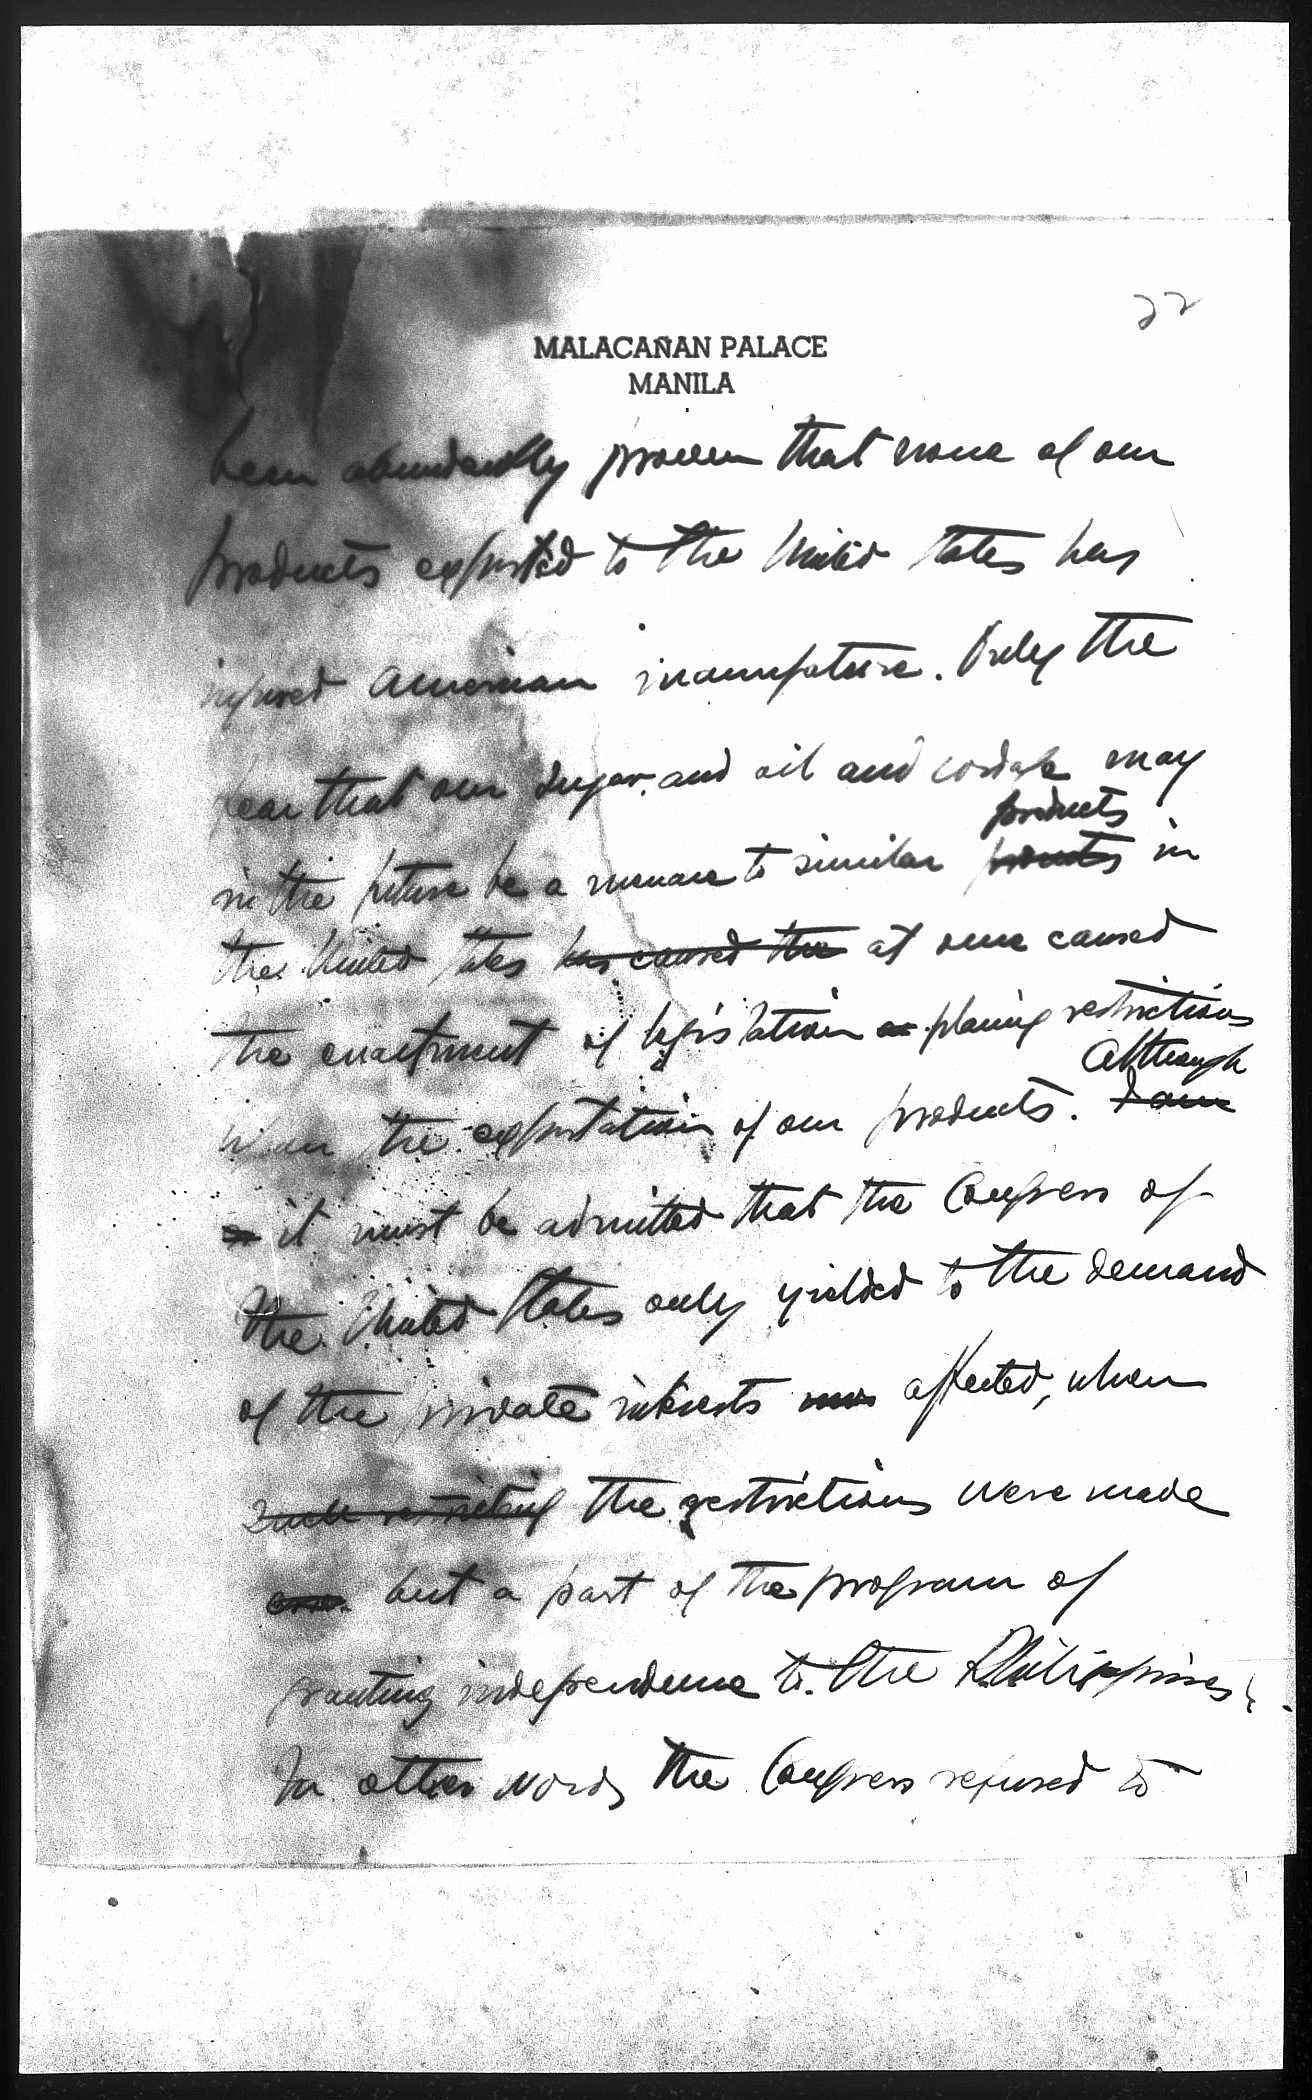 22
MALACAÑAN PALACE
MANILA
been abundantly proven that none of our
products exported to the United States has
injured American manufature. Only the
fear that our sugar, and oil and cordage may
products
in the future be a menace to similar products in
the United States has caused the at once caused
the enactment of legislation placing restrictions
Although
upon the exportation of our products. I am
it must be admitted that the Congress of
the United States only yielded to the demand
of the private interests affected, when
such restricting the restrictions were made
but a part of the program of
granting independence to the Philippines.
In other words the Congress refused to